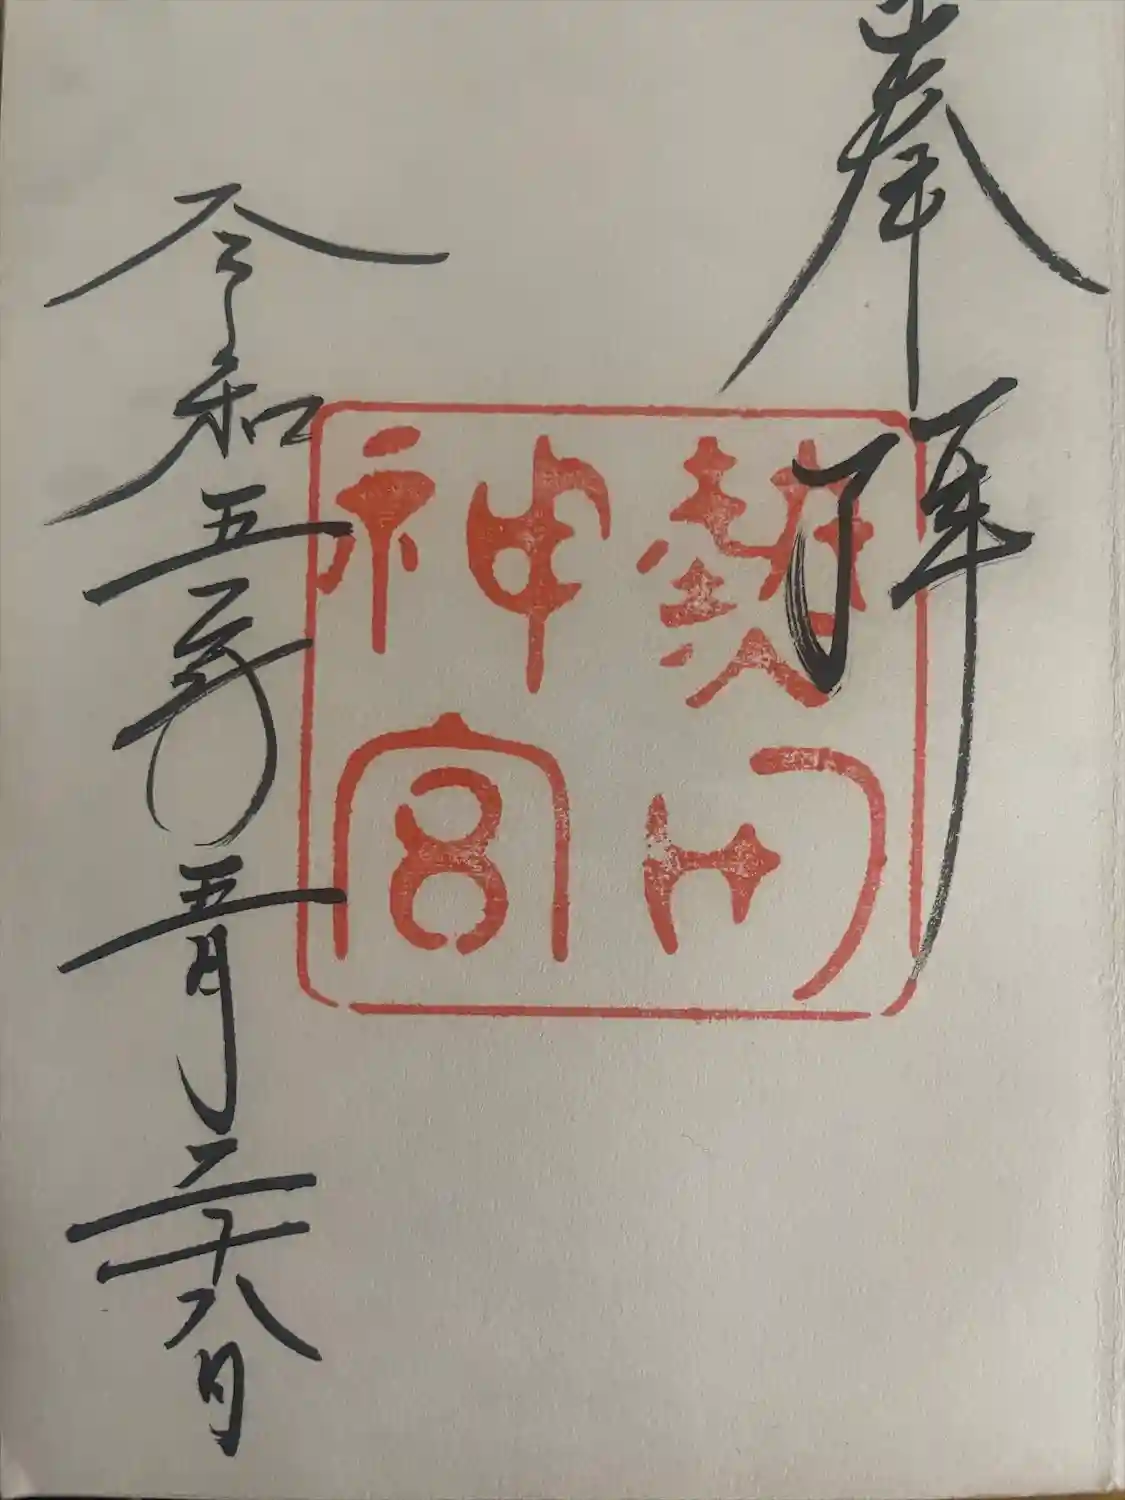 奉拝
熱田
神宮
令和五年五月二十八日